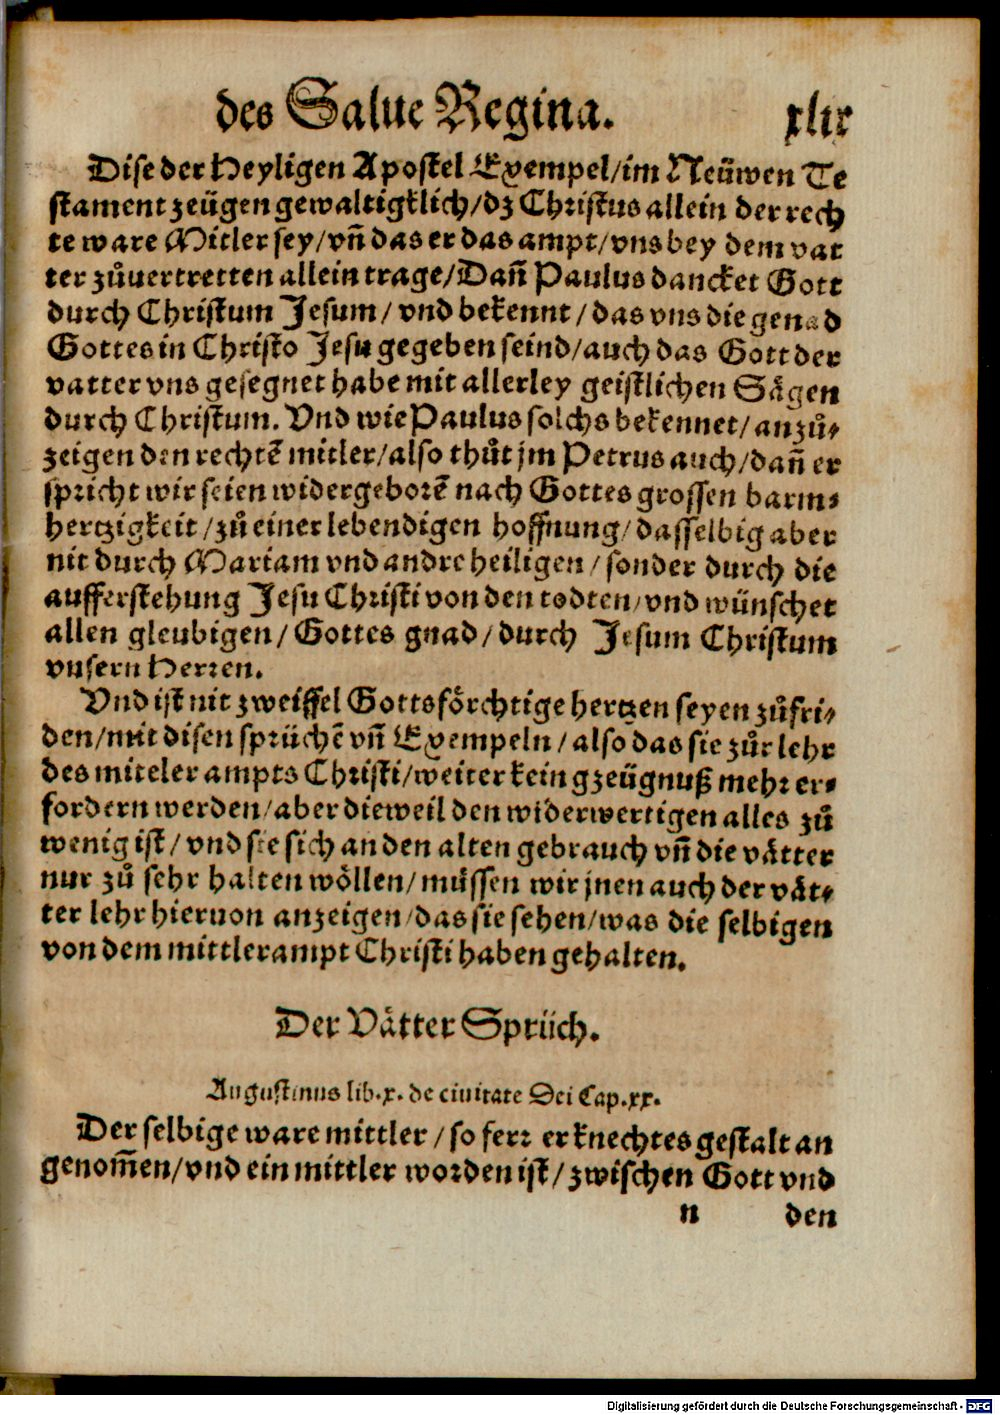 des Salue Regina. xlix
Dise der Heyligen Apostel Exempel/im Neüwen Te
stament zeügen gewaltigklich/dz Christus allein der rech
te ware Mitler sey/vñ das er das ampt/vns bey dem vat
ter zůuertretten allein trage/Dañ Paulus dancket Gott
durch Christum Jesum/vnd bekennt/das vns die genad
Gottes in Christo Jesu gegeben seind/auch das Gott der
vatter vns gesegnet habe mit allerley geistlichen Sägen
durch Christum. Vnd wie Paulus solchs bekennet/anzů⸗
zeigen den rechtẽ mitler/also thůt jm Petrus auch/dañ er
spricht wir seien widergeborẽ nach Gottes grossen barm⸗
hertzigkeit/zů einer lebendigen hoffnung/dasselbig aber
nit durch Mariam vnd andre heiligen/sonder durch die
aufferstehung Jesu Christi von den todten/vnd wünschet
allen gleubigen/Gottes gnad/durch Jesum Christum
vnsern Herren.
Vnd ist nit zweiffel Gottsförchtige hertzen seyen zůfri⸗
den/mit disen sprüchẽ vñ Exempeln/also das sie zůr lehr
des miteler ampts Christi/weiter kein gzeügnuß mehr er⸗
fordern werden/aber dieweil den widerwertigen alles zů
wenig ist/vnd sie sich an den alten gebrauch vñ die vätter
nur zů sehr halten wöllen/müssen wir jnen auch der vät⸗
ter lehr hieruon anzeigen/das sie sehen/was die selbigen
von dem mittlerampt Christi haben gehalten.
Der Vätter Sprüch.
Augustinus lib.x. de ciuitate Dei Cap.xx.
Der selbige ware mittler/so ferr er knechtes gestalt an
genom̃en/vnd ein mittler worden ist/zwischen Gott vnd
n den
Digitalisierung gefördert durch die Deutsche Forschungsgemeinschaft - DFG